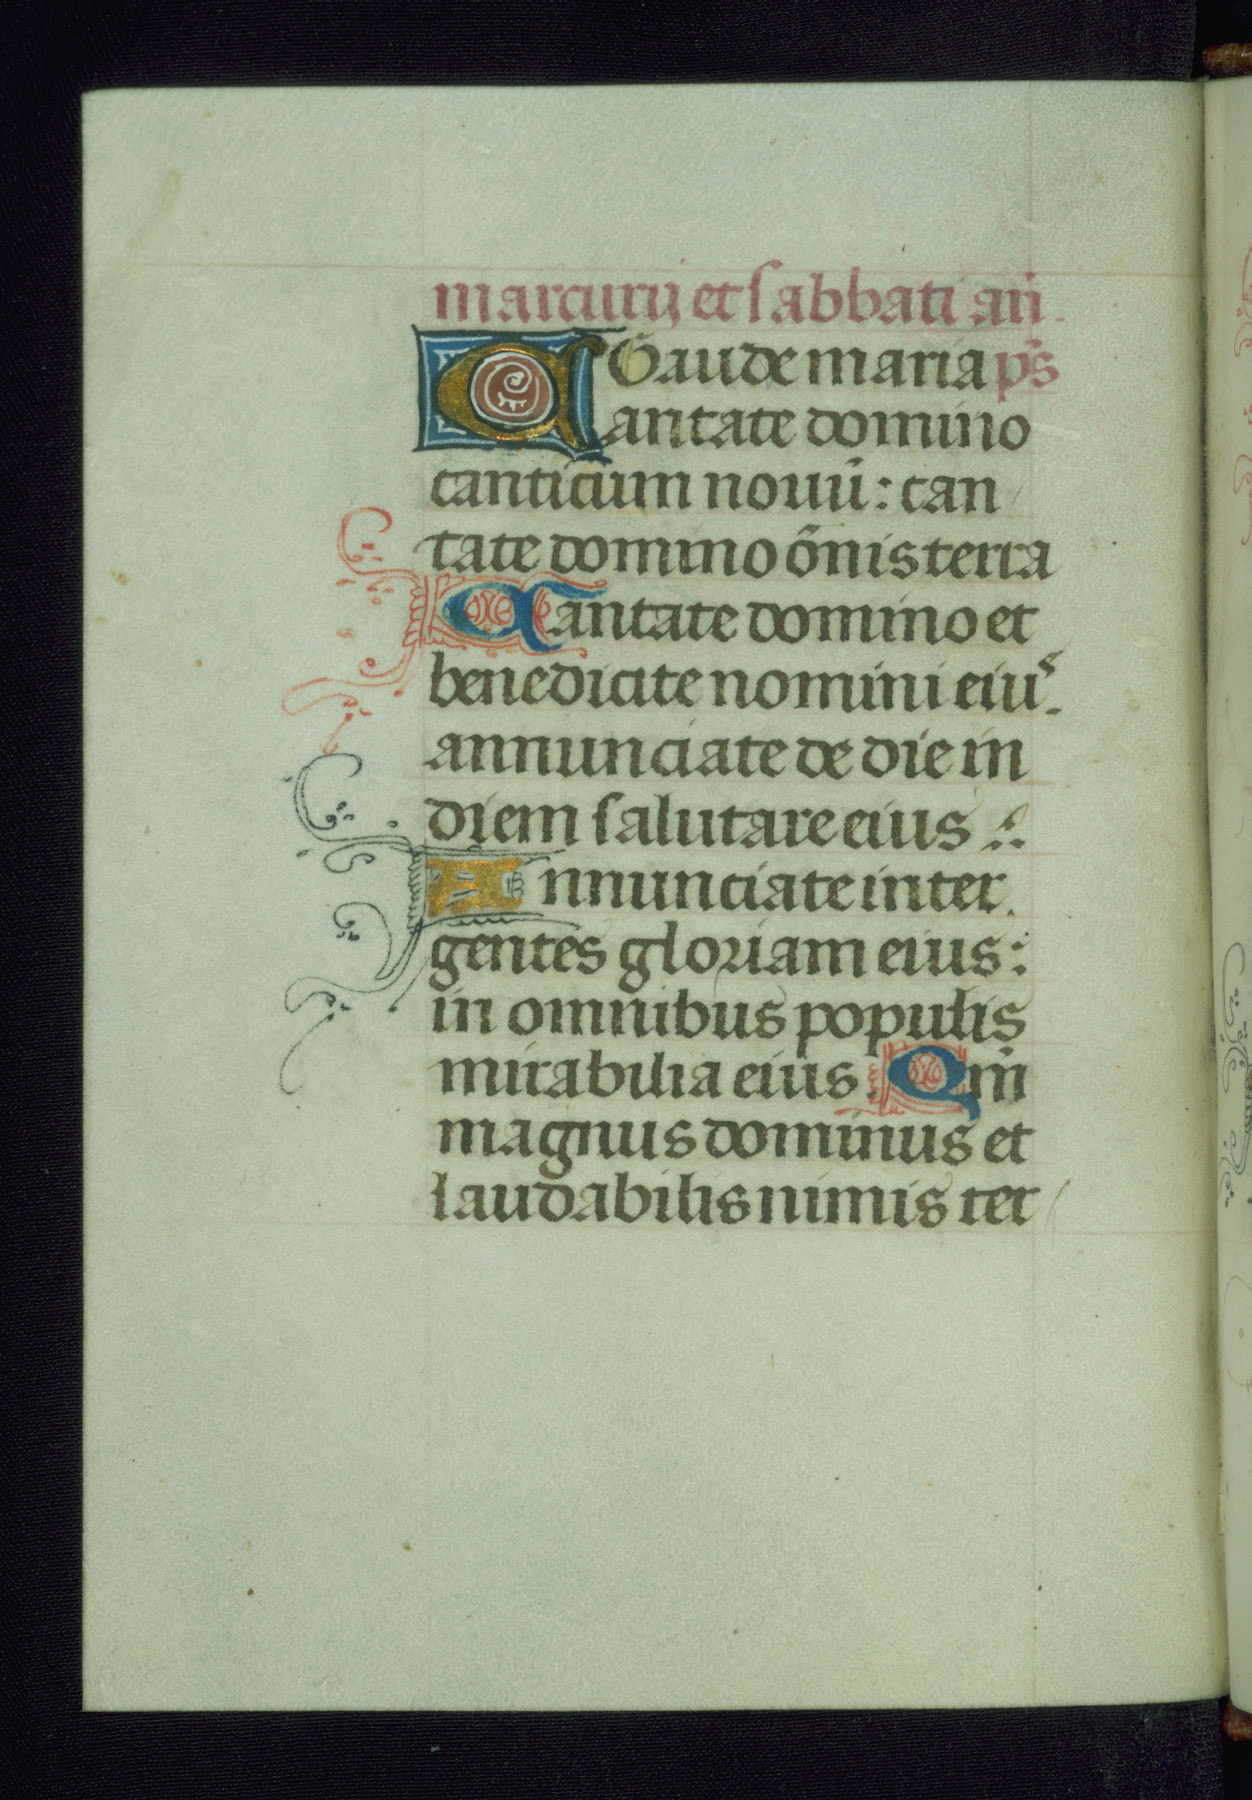 marcurij et sabbati añ.
Gaude maria ps̄
Cantate domino
canticum nouū: can
tate domino ōnis terra
Cantate domino et
benedicite nomini eiuˢ.
annunciate de die in
diem salutare eius :
Annunciate inter
gentes gloriam eius:
in omnibus populis
mirabilia eius. Qm̄
magnus dominus et
laudabilis nimis ter